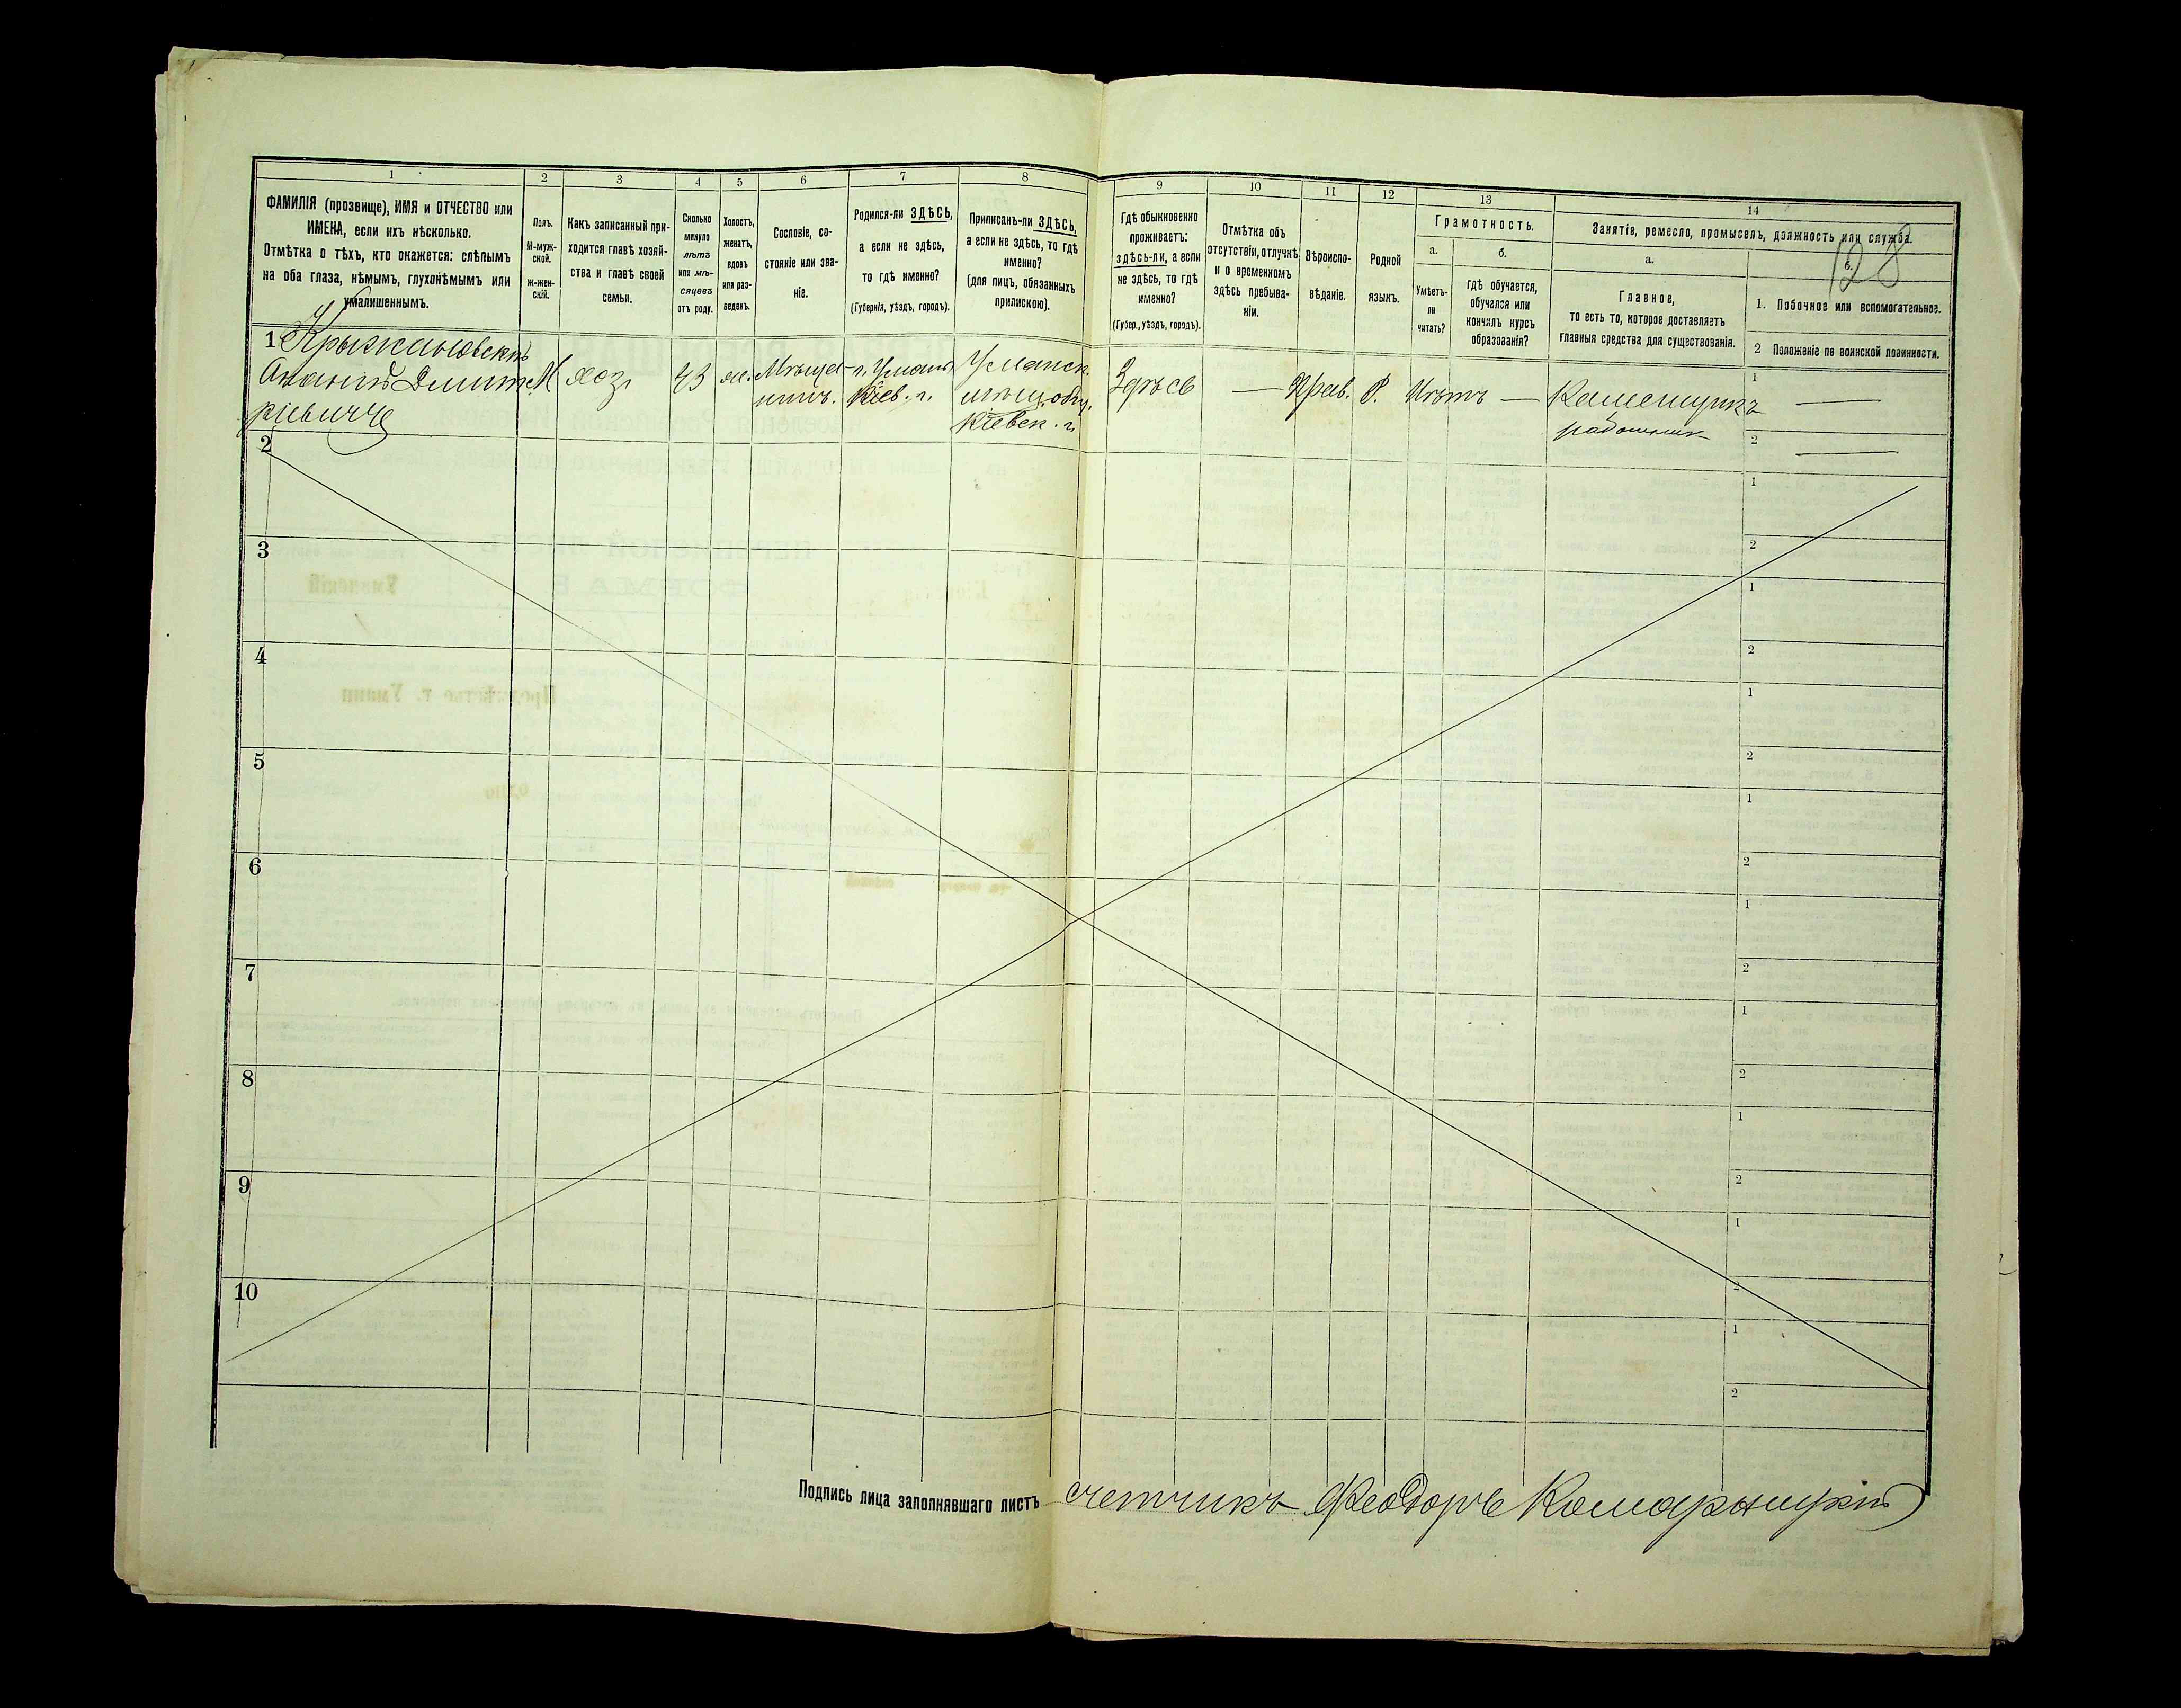 128
1 2 3 4 5 6 7 8 9 10 11 12 13 14
ФАМИЛІЯ (прозвище), ИМЯ и ОТЧЕСТВО или
ИМЕНА, если ихъ нѣсколько.
Отмѣтка о тѣхъ, кто окажется: слѣпымъ
на оба глаза, нѣмымъ, глухонѣмымъ или
умалишеннымъ.
Полъ.
М-муж-
ской.
ж-жен-
скій.
Какъ записанный при-
ходится главѣ хозяй-
ства и главѣ своей
семьи.
Сколько
минуло
лѣтъ
или мѣ-
сяцевъ
отъ роду.
Холостъ,
женатъ,
вдовъ
или раз-
веденъ.
Сословіе, со-
стояніе или зва-
ніе.
Родился-ли ЗДѢСЬ,
а если не здѣсь,
то гдѣ именно?
(Губернія, уѣздъ, городъ).
Приписанъ-ли ЗДѢСЬ,
а если не здѣсь, то гдѣ
именно?
(для лицъ, обязанныхъ
припискою).
Гдѣ обыкновенно
проживаетъ:
здѣсь-ли, а если
не здѣсь, то гдѣ
именно?
(Губер., уѣздъ, городъ).
Отмѣтка объ
отсутствіи, отлучкѣ
и о временномъ
здѣсь пребыва-
ніи.
Вѣроиспо-
вѣданіе.
Родной
языкъ.
Грамотность.
а.
Умѣетъ-
ли
читать?
б.
гдѣ обучается,
обучался или
кончилъ курсъ
образованія?
Занятія, ремесло, промыселъ, должность или служба.
а.
Главное,
то есть то, которое доставляетъ
главныя средства для существованія.
б.
1. Побочное или вспомогательное.
2 Положеніе по воинской повинности.
1 Крыжановскій
Ананій Дмит
ріевичъ
М
хоз.
43
ж.
Мѣща-
нинъ.
г. Умань
Кіев. г.
Уманск.
мѣщ. общ.
Кіевск. г.
Здѣсь
—
Прав.
Р.
Нѣтъ
—
Каменщикъ
работник
1 —
2 —
2
1
2
3
1
2
4
1
2
5
1
2
6
1
2
7
1
2
8
1
2
9
1
2
10
1
2
Подпись лица заполнявшаго листъ счетчикъ Феодоръ Комарницкій